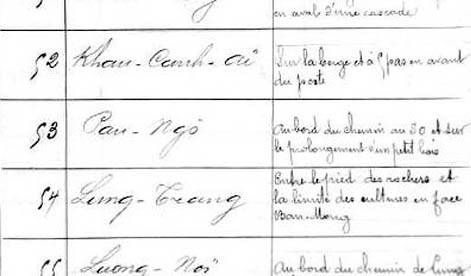 en aval d'une cascade
52 Khau-Canh-ai Sur la berge et à 5 pas en avant
du poste
53 Pau-Ngò Au bord du chemin au 30 et sur
le prolongement d'un petit bois
54 Lung-Trang Entre le pied des rochers et
la limite des cultures en face
Ban-Mong
55 Luong-Noi Au bord du chemin de Lung